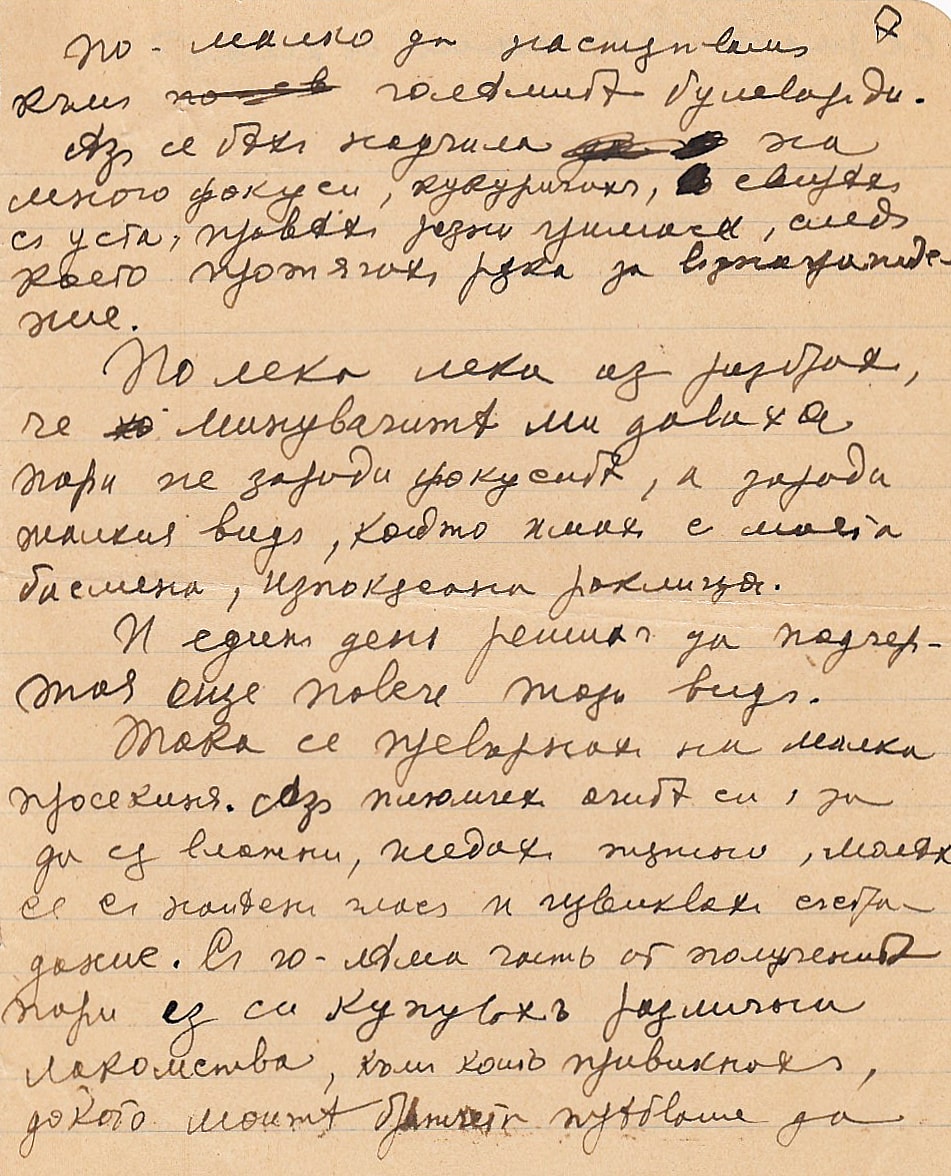 по-малко да настѫпвамъ
къмъ голѣмитѣ булеварди.
Азъ се бѣхъ научила на
много фокуси, кукуригахъ, свирѣхъ
съ уста, правѣхъ разни гримаси, следъ
което протягахъ рѫка за възнагражде-
ние.
По лека лека аз разбрах,
че минувачитѣ ми даваха
пари не заради фокуситѣ, а заради
жалкия видъ, който имахъ с моята
басмена, изпокѫсана рокличка.
И единъ день решихъ да подчер-
тая още повече този видъ.
Така се превърнахъ на малка
просекиня. Азъ плюнчех очитѣ си, за
да сѫ влажни, гледахъ тѫжно, молѣхъ
се съ нажален гласъ и извиквахъ състра-
дание. Съ го-лѣма часть от полученитѣ
пари аз си купувахъ различни
лакомства, към които привикнахъ,
докато моитѣ трѣбваше да